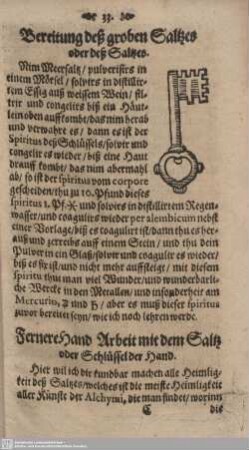 33.
Bereitung deß groben Saltzes
oder deß Saltzes.
Nim Meersaltz / pulverisirs in
einem Mörsel / solvirs in distillir-
tem Essig auß weissem Wein / fil-
trir und congelirs biß ein Häut-
lein oben auff kombt / das nim herab
und verwahre es / dann es ist der
Spiritus deß Schlüssels / solvir und
congelir es wieder / biß eine Haut
drauff kombt / das nim abermahl
ab / so ist der spiritus vom corpore
gescheiden / thu zu 10. Pfund dieses
Spiritus 1. Pf. und solvirs in distillirtem Regen-
wasser / und coagulirs wieder per alembicum nebst
einer Vorlage / biß es coagulirt ist / dann thu es her-
auß und zerreibs auff einem Stein / und thu dein
Pulver in ein Glaß / solvir und coagulir es wieder /
biß es fix ist / und nicht mehr auffsteigt / mit diesem
Spiritu thu man viel Wunder / und wunderbarli-
che Werck in den Metallen / und insonderheit am
Mercurio, und / aber es muß dieser spiritus
zuvor bereitet seyn / wie ich noch lehren werde.
Fernere Hand Arbeit mit dem Saltz
oder Schlüssel der Hand.
Hier wil ich die kundbar machen alle Heimlig-
keit deß Saltzes / welches ist die meiste Heimligkeit
aller Künste der Alchymi, die man findet / worinn
C die